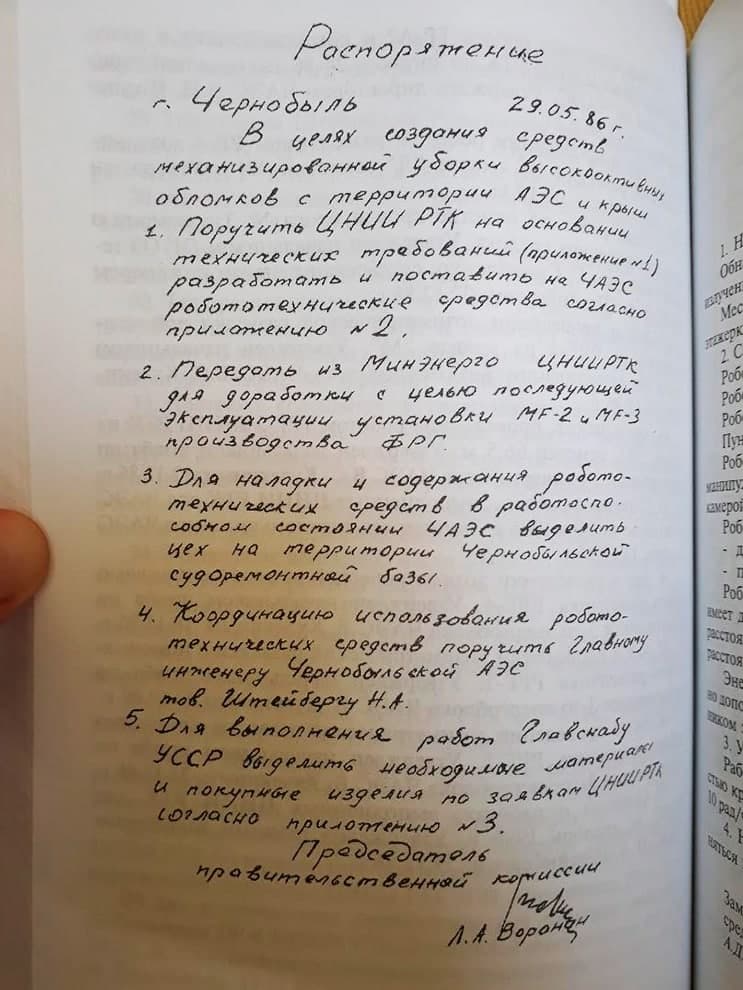 Распоряжение
г. Чернобыль 29.05.86 г.
В целях создания средств
механизированной уборки высокоактивных
обломков с территории АЭС и крыш
1. Поручить ЦНИИ РТК на основании
технических требований (приложение №1)
разработать и поставить на ЧАЭС
робототехнические средства согласно
приложению № 2.
2. Передать из Минэнерго ЦНИИРТК
для доработки с целью последующей
эксплуатации установки MF-2 и MF-3
производства ФРГ.
3. Для наладки и содержания робото-
технических средств в работоспо-
собном состоянии ЧАЭС выделить
цех на территории Чернобыльской
судоремонтной базы.
4. Координацию использования робото-
технических средств поручить Главному
инженеру Чернобыльской АЭС
тов. Штейбергу Н.А.
5. Для выполнения работ Главснабу
УССР выделить необходимые материалы
и покупные изделия по заявкам ЦНИИРТК
согласно приложению №3.
Председатель
правительственной комиссии
Л.А. Воронин
1. Н
Обн
излучен
Мес
этажерк
2. С
Робо
Робо
Робо
Пун
Робо
манипу
камерой
Роб
- д
- п
Робо
имеет д
расстоя
расстоя
Эне
но допо
ником
3. У
Раб
стью кр
10 рад/
4. Н
няться
Зам
сред
А.Д